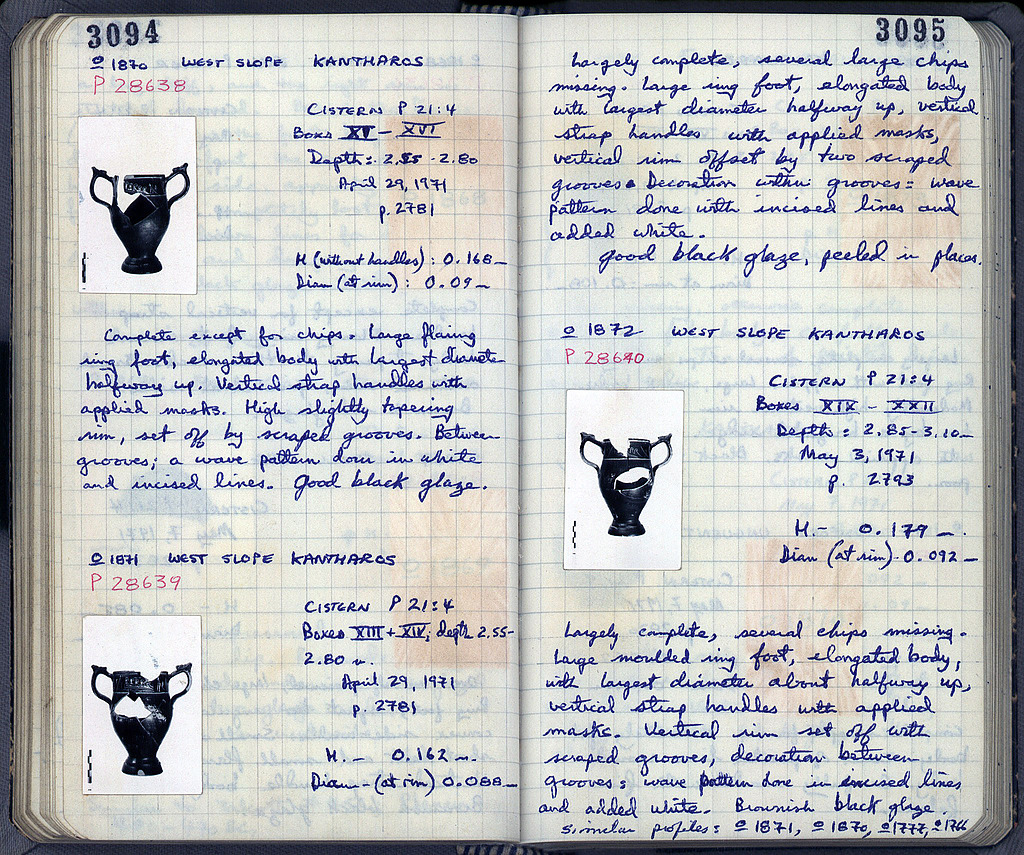 3094
o 1870 WEST SLOPE KANTHAROS
P 28638
CISTERN P 21:4
Boxes XV - XVI
Depth: 2.55 - 2.80
April 29, 1971
p. 2781
H (without handles): 0.168
Diam (at rim): 0.09
Complete except for chips. Large flaring
ring foot, elongated body with largest diameter
halfway up. Vertical strap handles with
applied masks. High slightly tapering
rim, set off by scraped grooves. Between
grooves; a wave pattern done in white
and incised lines. Good black glaze.
o 1871 WEST SLOPE KANTHAROS
P 28639
CISTERN P 21:4
Boxes XIII + XIV; depth 2.55-
2.80 m.
April 29, 1971
p. 2781
H. - 0.162 m.
Diam - (at rim) 0.088
3095
Largely complete, several large chips
missing. Large ring foot, elongated body
with largest diameter halfway up, vertical
strap handles with applied masks,
vertical rim offset by two scraped
grooves. Decoration within grooves: wave
pattern done with incised lines and
added white.
Good black glaze, peeled in places.
o 1872 WEST SLOPE KANTHAROS
P 28640
CISTERN P 21:4
Boxes XIX - XXII
Depth: 2.85-3.10
May 3, 1971
p. 2793
H. - 0.179
Diam (at rim) - 0.092
Largely complete, several chips missing.
Large moulded ring foot, elongated body,
with largest diameter about halfway up,
vertical strap handles with applied
masks. Vertical rim set off with
scraped grooves, decoration between
grooves: wave pattern done in incised lines
and added white. Brownish black glaze.
Similar profiles: o 1871, o 1870, o 1777, o 1766